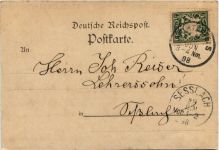 Deutsche Reichspost.
Postkarte.
An
Herrn Joh. Reiser
Lehrerssohn
in
SESSLACH
98